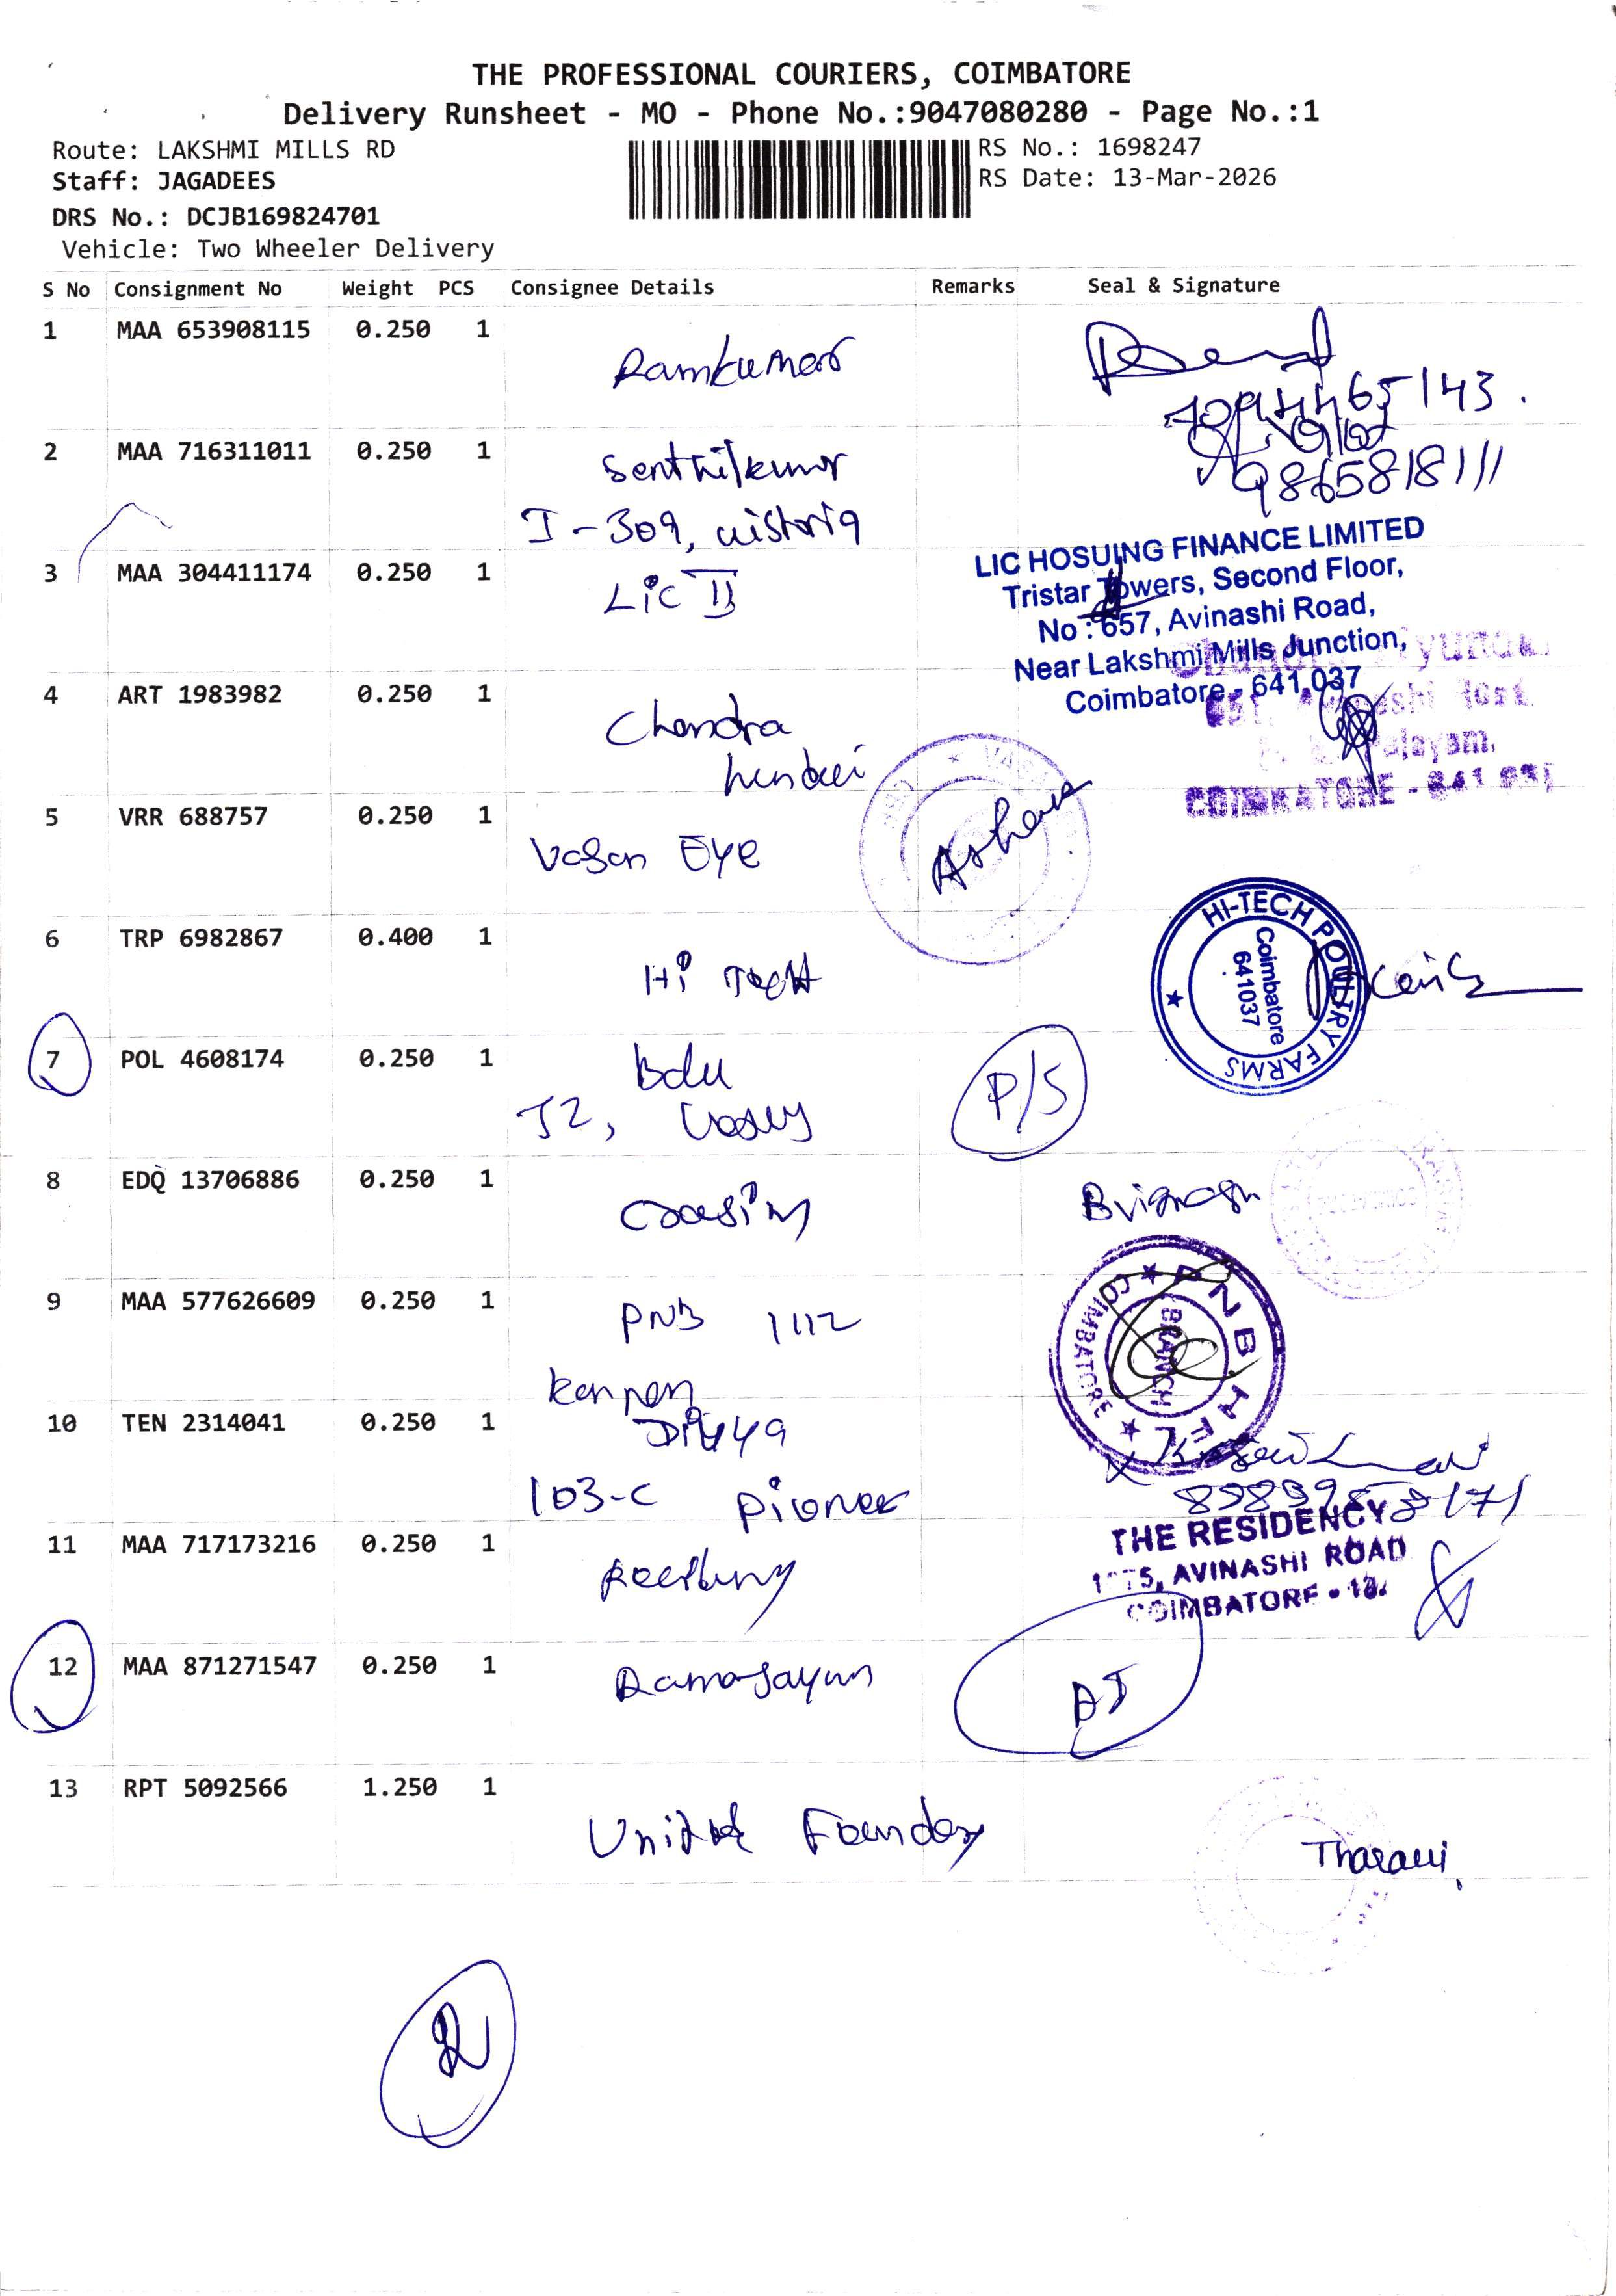 THE PROFESSIONAL COURIERS, COIMBATORE
Delivery Runsheet - MO - Phone No.:9047080280 - Page No.:1
Route: LAKSHMI MILLS RD
RS No.: 1698247
Staff: JAGADEES
RS Date: 13-Mar-2026
DRS No.: DCJB169824701
Vehicle: Two Wheeler Delivery
S No Consignment No Weight PCS Consignee Details Remarks Seal & Signature
1 MAA 653908115 0.250 1 Ramkumar
65143.
2 MAA 716311011 0.250 1 Senthilkumar
9865818111
I-309,
LIC HOSUING FINANCE LIMITED
Tristar Towers, Second Floor,
No : 657, Avinashi Road,
Near Lakshmi Mills Junction,
Coimbatore - 641 037
3 MAA 304411174 0.250 1 LiC II
4 ART 1983982 0.250 1 Chandra
COIMBATORE - 641 037
5 VRR 688757 0.250 1 Vasan Eye
6 TRP 6982867 0.400 1 Hi Tech
HI-TECH POULTRY FARMS
Coimbatore
641037
7 POL 4608174 0.250 1 Balu
P/S
J2,
8 EDQ 13706886 0.250 1
9 MAA 577626609 0.250 1 PNB 1112
PNB HFL
COIMBATORE
BRANCH
Kannan
10 TEN 2314041 0.250 1
103-C Pioneer
THE RESIDENCY
AVINASHI ROAD
COIMBATORE - 18.
11 MAA 717173216 0.250 1
12 MAA 871271547 0.250 1
13 RPT 5092566 1.250 1
United Foundry
Tharani